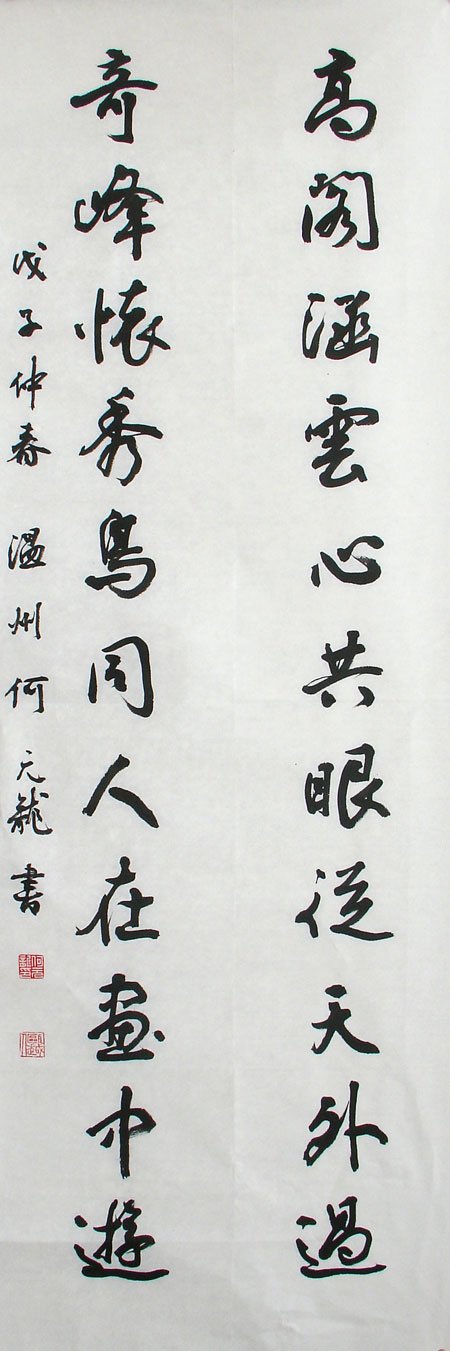 高閣涵雲心共眼從天外過
奇峰懷秀鳥同人在畫中遊
戊子仲春 溫州何元龍書